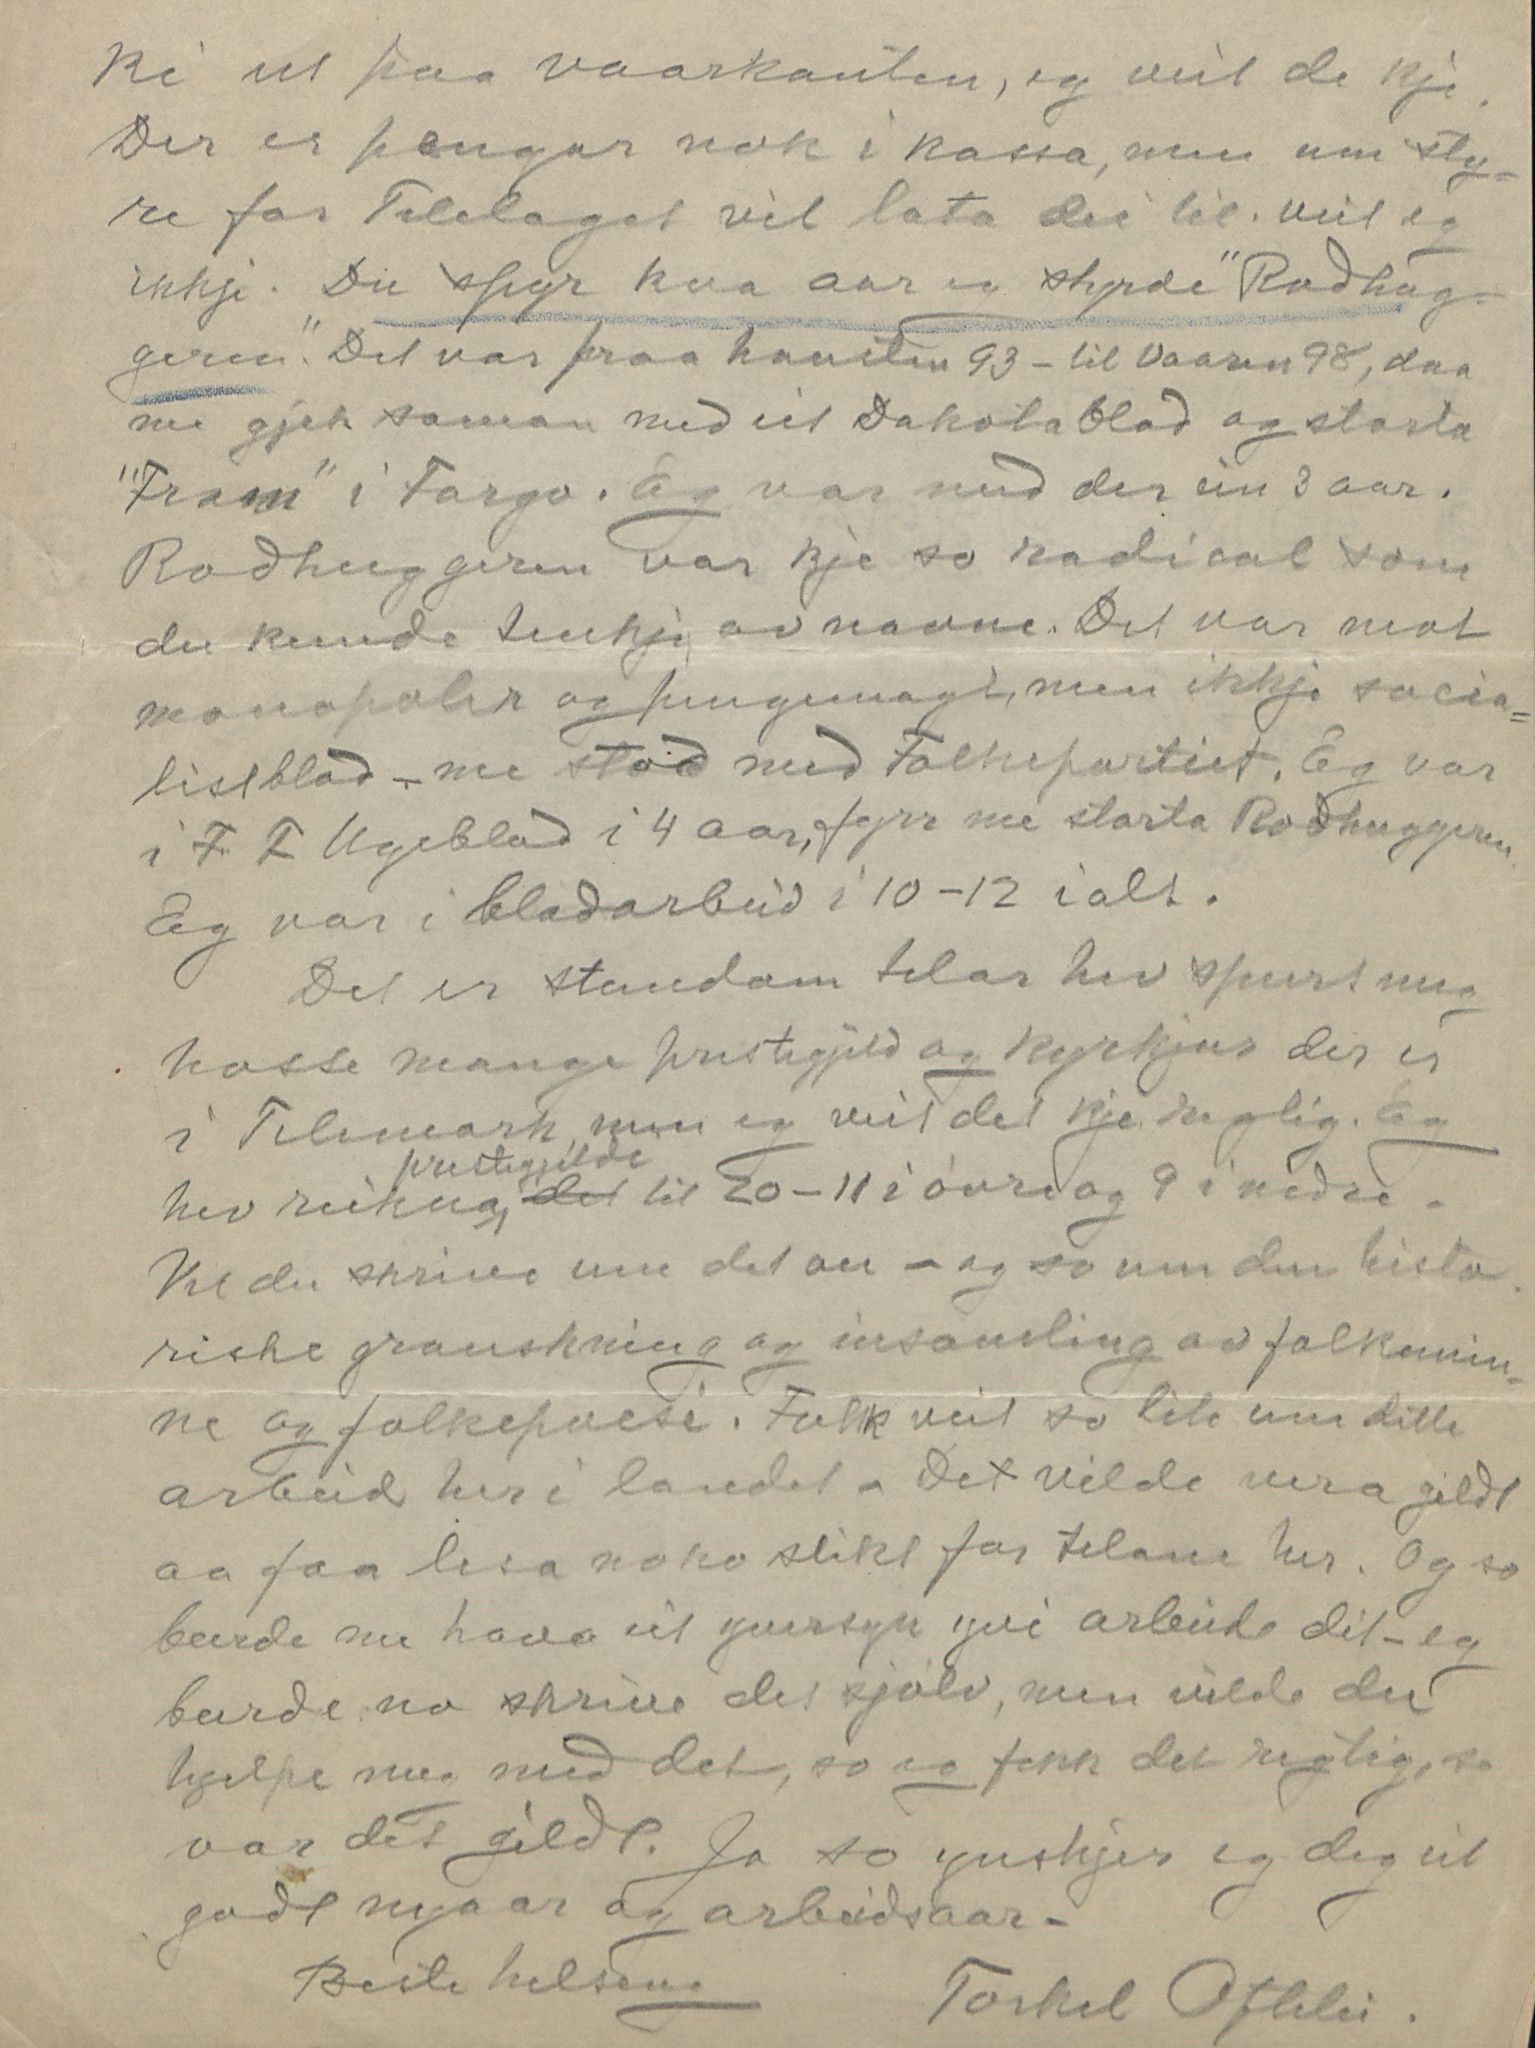 ke ut paa vaarkanten, eg veit de kje.
Der er pengar nok i kassa, men um sty-
re for Telelaget vil lata dei til. veit eg
ikkje. Du spyr kva aar eg styrde "Rodhug-
geren". Det var fraa hausten 93 - til vaaren 98, daa
me gjek saman med eit Dakotablad og starta
"Fram" i Fargo. Eg var med der ein 3 aar.
Rodhuggeren var kje so radical som
du kunde tenkje av navne. Det var mot
monopoler og pengemagt, men ikkje socia=
listblad - me stod med Folkepartiet. Eg var
i F F Ugeblad i 4 aar, fyrr me starta Rodhuggeren.
Eg var i bladarbeid i 10-12 ialt.
Det er stundom telar hev spurt meg
hosse mange prestegjeld og kyrkjur der er
i Telemark, men eg veit det kje regtig. Eg
hev reikna prestegjelde til 20 - 11 i övre og 9 i nedre.
Vil du skrive um det au - og so um den histo
riske granskning og insamling av folkemin-
ne og folkepoesi. Folk veit so lite um dette
arbeid her i landet. Det vilde vera gildt
aa faa lesa noko slikt for telane her. Og so
burde me hava eit yversyn yvi arbeide dit - eg
burde no skrive det sjölv, men vilde du
hjelpe meg med det, so eg fekk det regtig, so
var det gildt. Ja so ynskjer eg deg eit
godt nyaar og arbeidsaar -
Beste helsing
Torkel Oftelie.